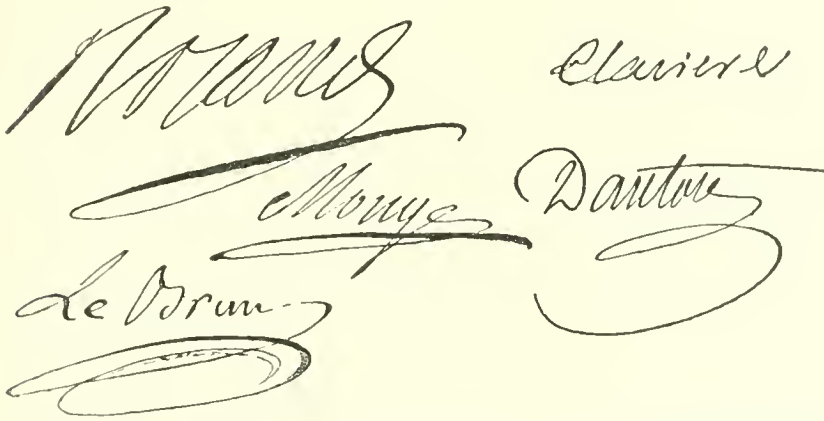 Roland Claviere
Monge Danton
Le Brun